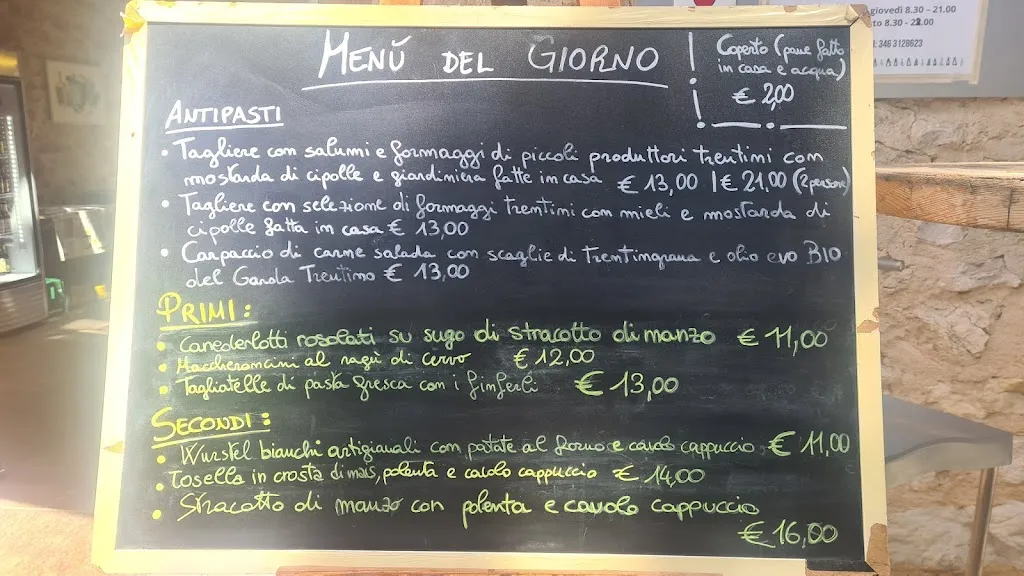 giovedì 8.30 – 21.00
8.30 - 22.00
: 346 3128623
MENÙ DEL GIORNO
Coperto (pane fatto
in casa e acqua)
€ 2,00
ANTIPASTI
• Tagliere con salumi e formaggi di piccoli produttori trentini con
mostarda di cipolle e giardiniera fatte in casa € 13,00 | € 21,00 (2 persone)
• Tagliere con selezione di formaggi trentini con mieli e mostarda di
cipolle fatta in casa € 13,00
• Carpaccio di carne salada con scaglie di Trentingrana e olio evo BIO
del Garda Trentino € 13,00
PRIMI:
• Canederlotti rosolati su sugo di stracotto di manzo € 11,00
• Maccheroncini al ragù di cervo € 12,00
• Tagliatelle di pasta fresca con i finferli € 13,00
SECONDI:
• Wurstel bianchi artigianali con patate al forno e cavolo cappuccio € 11,00
• Tosella in crosta di mais, polenta e cavolo cappuccio € 14,00
• Stracotto di manzo con polenta e cavolo cappuccio
€ 16,00